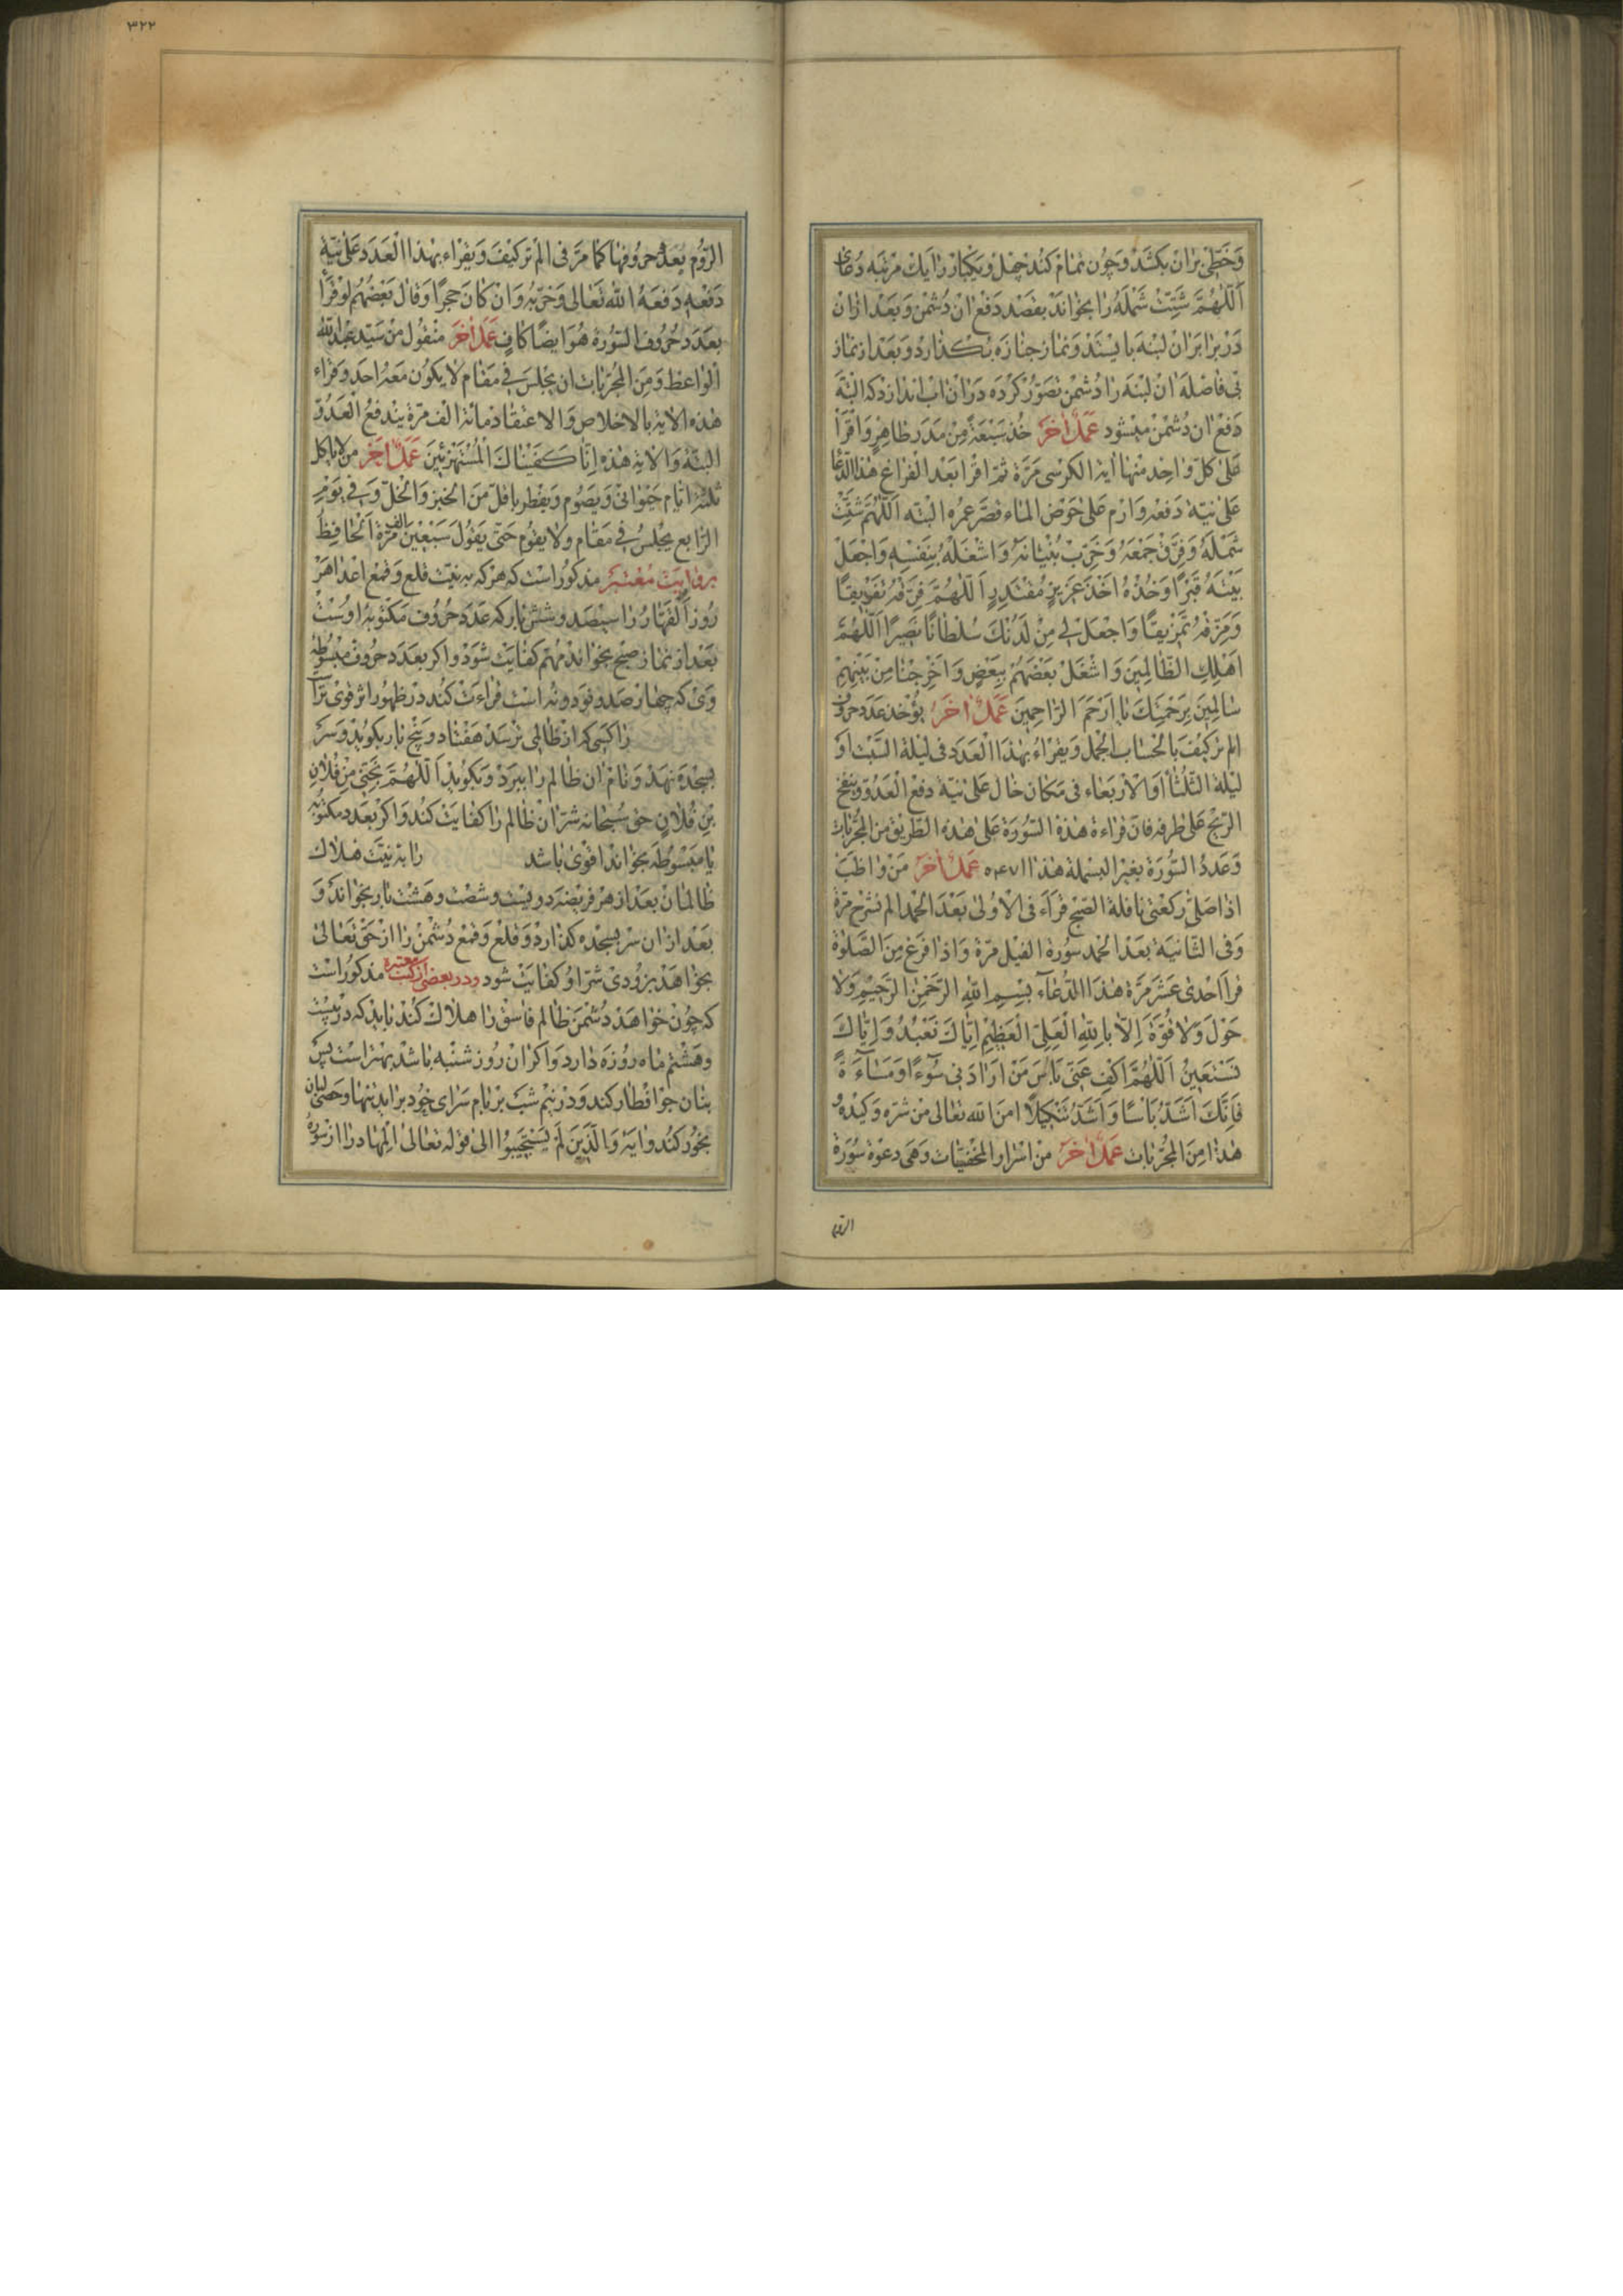 وَخَطّى بران بكشد وچون تمام كند چهل ويكبار را يك مرتبه دعاى
اَللّٰهُمَّ شَتِّتْ شَمْلَهُ را بخواند بقصد دفع ان دشمن وبعد ازان
در برابر ان لبنه بايستد ونماز جنازه بكذارد وبعد از نماز
بى فاصله ان لبنه را دشمن تصور كرده دران اب اندازد كه البته
دفع ان دشمن ميشود عَمَلٌ اٰخَر خذ سبعة من مدر ظاهر واقرأ
على كلّ واحد منها اية الكرسى مرّة ثم اقرا بعد الفراغ هذا الدّعا
على نيّة دفعه وارم على حوض الماء قصّر عمره البته اللّهم شتّت
شمله وفرّق جمعه وخرّب بنيانه واشغله بنفسه واجعل
بيته قبرًا وخذه اخذ عزيز مقتدر اللّهمّ فرّقه تفريقًا
ومزّقه تمزيقًا واجعل لى من لدنك سلطانًا نصيرًا اللّهمّ
اهلك الظّالمين واشغل بعضهم ببعض واخرجنا من بينهم
سالمين برحمتك يا ارحم الرّاحمين عَمَلٌ اٰخَر يؤخذ عدد حروف
الم تركيف بالحساب الجمل ويقراء بهذا العدد فى ليلة السّبت او
ليلة الثّلثا او الاربعاء فى مكان خال على نيّة دفع العدوّ وينفخ
الريح على طرفه فان قراءة هذه السّورة على هذه الطّريق من المجرّبات
وعدد السّورة بغير البسملة هذا ٥٤٧١ عَمَلٌ اٰخَر من واظب
اذا صلّى ركعتى نافلة الصّبح قراء فى الاولى بعد الحمد الم نشرح مرّة
وفى الثّانية بعد الحمد سورة الفيل مرّة واذا فرغ من الصّلوة
قرا احدى عشر مرّة هذا الدّعاء بسم الله الرّحمن الرّحيم ولا
حول ولا قوّة الّا بالله العلىّ العظيم ايّاك نعبد وايّاك
نستعين اللّهمّ اكف عنّى باس من اراد بى سوءًا ومساءة
فانّك اشدّ باسًا واشدّ تنكيلًا امن الله تعالى من شرّه وكيده و
هذا من المجرّبات عَمَلٌ اٰخَر من اسرار المخفيّات وهى دعوة سورة
الروم
٣٢٢
الرّوم بعدد حروفها كما مرّ فى الم تركيف ويقراء بهذا العدد على نيّة
دفعه دفعه الله تعالى وخرّبه وان كان حجرًا وقال بعضهم لو قرأ
بعدد حروف السّورة هو ايضًا كاف عَمَلٌ اٰخَر منقول من سيّد عبد الله
الواعظ ومن المجرّبات ان يجلس فى مقام لا يكون معه احد وقراء
هذه الاية بالاخلاص والاعتقاد مائة الف مرّة يندفع العدوّ
البتّه والاية هذه انّا كفيناك المستهزئين عَمَلٌ اٰخَر من لا ياكل
ثلثة ايّام حيوانى ويصوم ويفطر باقلّ من الخبز والخلّ وفى يوم
الرّابع يجلس فى مقام ولا يقوم حتّى يقول سبعين الف مرّة
بروايت معتبر مذكور است كه هركه به نيّت قلع وقمع اعدا هر
روز القهّار را سيصد وشش بار كه عدد حروف مكتوبه اوست
بعد از نماز صبح بخواند مهم كفايت شود واكر بعدد حروف مبسوطه
وى كه چهار صد ونود ونه است قراءت كند در ظهور اثر قوى تر
راكسى كه از ظالمى ترسد هفتاد وپنج بار بكويد وسر
بسجده نهد ونام ان ظالم را ببرد وبكويد اللّهمّ نجّنى من فلان
بن فلان حق سبحانه شرّ ان ظالم را كفايت كند واكر بعدد مكتوبه
يا مبسوطه بخواند اقوى باشد را به نيّت هلاك
ظالمان بعد از هر فريضه دويست وشصت وهشت بار بخواند و
بعد ازان سر بسجده كذارد وقلع وقمع دشمن را از حق تعالى
بخواهد بزودى شرّ او كفايت شود ودر بعضى از كتب معتبره مذكور است
كه چون خواهد دشمن ظالم فاسق را هلاك كند بايد كه در بيست
وهشتم ماه روزه دارد واكر ان روز شنبه باشد بهتر است پس
بنان جو افطار كند ودر نيم شب بر بام سراى خود برايد تنها وحصى لبان
بخور كند وايه والّذين لم يستجيبوا الى قوله تعالى المهاد را از سوره